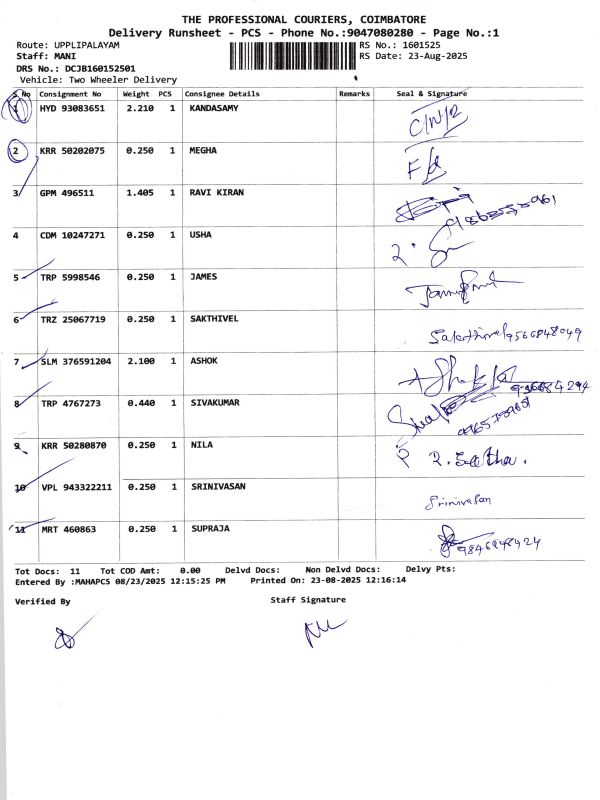 THE PROFESSIONAL COURIERS, COIMBATORE
Delivery Runsheet - PCS - Phone No.:9047080280 - Page No.:1
Route: UPPLIPALAYAM RS No.: 1601525
Staff: MANI RS Date: 23-Aug-2025
DRS No.: DCJB160152501
Vehicle: Two Wheeler Delivery
S No Consignment No Weight PCS Consignee Details Remarks Seal & Signature
1 HYD 93083651 2.210 1 KANDASAMY
2 KRR 50202075 0.250 1 MEGHA
3 GPM 496511 1.405 1 RAVI KIRAN
4 CDM 10247271 0.250 1 USHA
5 TRP 5998546 0.250 1 JAMES
6 TRZ 25067719 0.250 1 SAKTHIVEL Sakthivel 9566848049
7 SLM 376591204 2.100 1 ASHOK
8 TRP 4767273 0.440 1 SIVAKUMAR
9 KRR 50280870 0.250 1 NILA
10 VPL 943322211 0.250 1 SRINIVASAN Srinivasan
11 MRT 460863 0.250 1 SUPRAJA 9846848424
Tot Docs: 11 Tot COD Amt: 0.00 Delvd Docs: Non Delvd Docs: Delvy Pts:
Entered By :MAHAPCS 08/23/2025 12:15:25 PM Printed On: 23-08-2025 12:16:14
Verified By Staff Signature